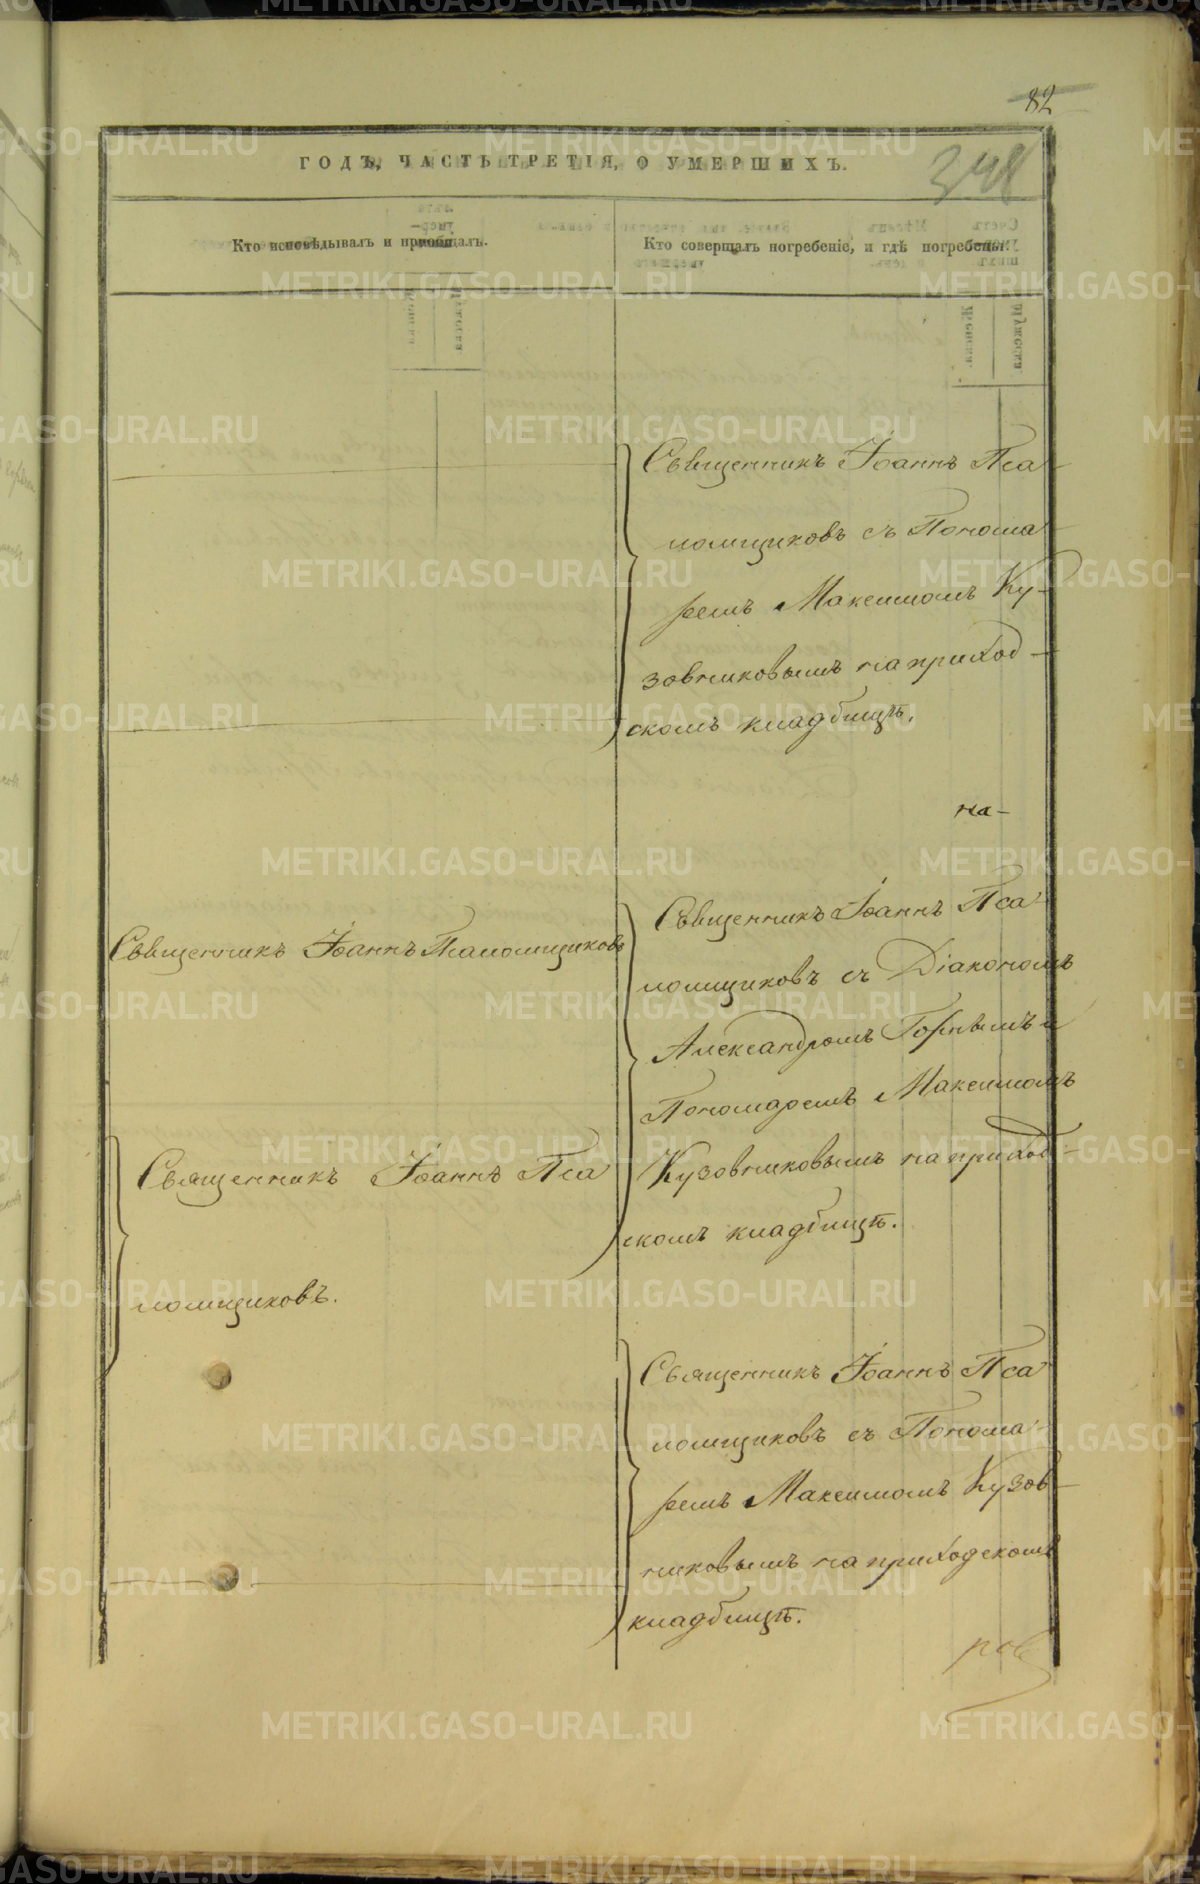 82
348
ГОДЪ, ЧАСТЬ ТРЕТІЯ, О УМЕРШИХЪ.
Кто исповѣдывалъ и пріобщалъ.
Кто совершалъ погребеніе, и гдѣ погребены.
Священникъ Іоаннъ Пса
ломщиковъ съ Понома
ремъ Максимомъ Ку-
зовниковымъ на приход-
скомъ кладбищѣ.
на-
Священникъ Іоаннъ Псаломщиковъ
Священникъ Іоаннъ Пса
ломщиковъ съ Діакономъ
Александромъ Горнымъ и
Пономаремъ Максимомъ
Кузовниковымъ на приход-
скомъ кладбищѣ.
Священникъ Іоаннъ Пса
ломщиковъ.
Священникъ Іоаннъ Пса
ломщиковъ съ Понома-
ремъ Максимомъ Кузов-
никовымъ на приходскомъ
кладбищѣ.
ров
METRIKI.GASO-URAL.RU